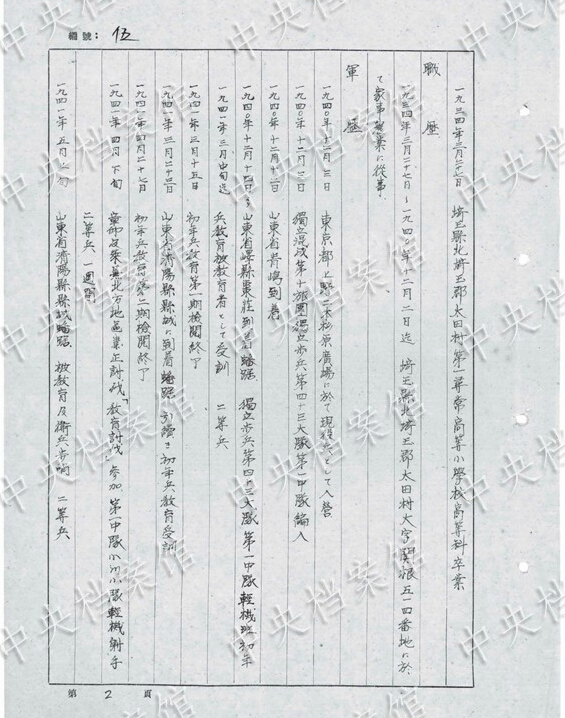 編號：伍
一九三四年三月二七日　埼玉縣北埼玉郡太田村第一尋常高等小學校高等科卒業
職歷
一九三四年三月二七日～一九四〇年十二月二日迄　埼玉縣北埼玉郡太田村大字關根五一四番地に於
て家事農業に從事
軍歷
一九四〇年十二月三日　東京都上野二本杉原廣場に於て現役兵として入營
一九四〇年十二月三日　獨立混成第十旅團獨立步兵第四十三大隊第一中隊編入
一九四〇年十二月十日　山東省青嶋到着
一九四〇年十二月十四日～　山東省嶧縣棗莊到着蟠踞　獨立步兵第四十三大隊第一中隊輕機班初年
一九四一年三月中旬迄　兵教育被教育者として受訓　二等兵
一九四一年三月十五日　初年兵教育第一期檢閱終了
一九四一年三月二十三日　山東省濟陽縣縣城に到着蟠踞引續き初年兵教育受訓
一九四一年四月二十七日　初年兵教育第二期檢閱終了
一九四一年四月下旬　章邱及萊蕪北方地區肅正討伐「教育討伐」參加　第一中隊小隊輕機射手
二等兵　一週間
一九四一年五月上旬　山東省濟陽縣縣城蟠踞　被教育及衛兵步哨　二等兵
第2頁
中央档案馆